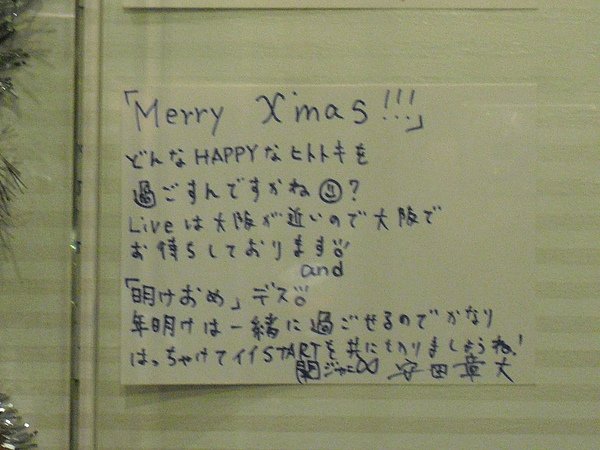 「Merry X'mas!!!」
どんなHAPPYなヒトトキを
過ごすんですかね?
Liveは大阪が近いので大阪で
お待ちしております
and
「明けおめ」デス
年明けは一緒に過ごせるのでかなり
はっちゃけてイイSTARTを共にきりましょうね!
関ジャニ∞ 安田章大